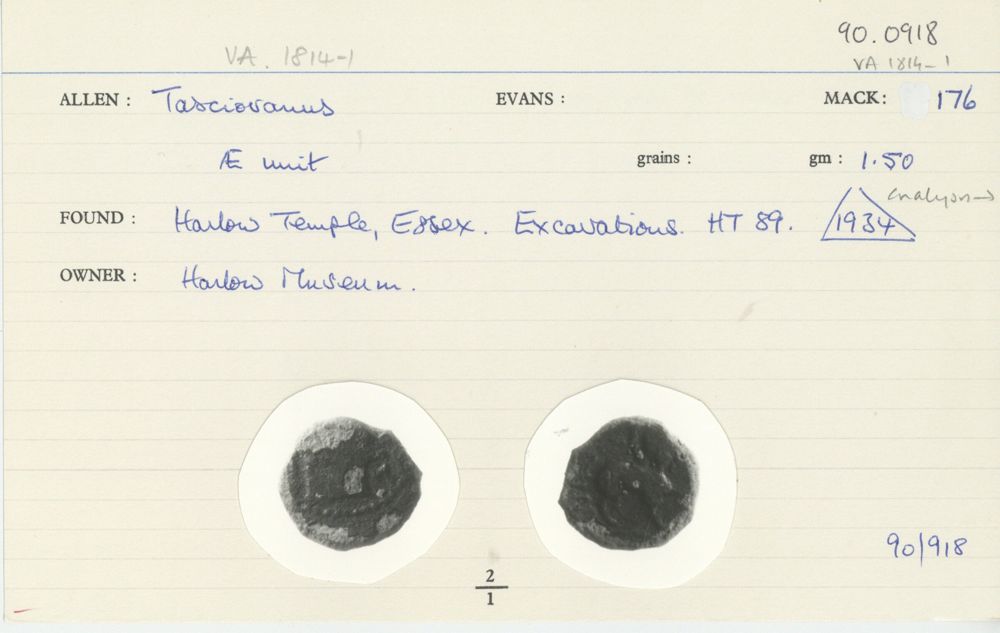 90.0918
VA. 1814-1
VA 1814-1
ALLEN : Tasciovanus EVANS : MACK: 176
Æ unit grains : gm : 1.50
analysis →
FOUND : Harlow Temple, Essex. Excavations. HT 89. 1934
OWNER : Harlow Museum.
90/918
2
1